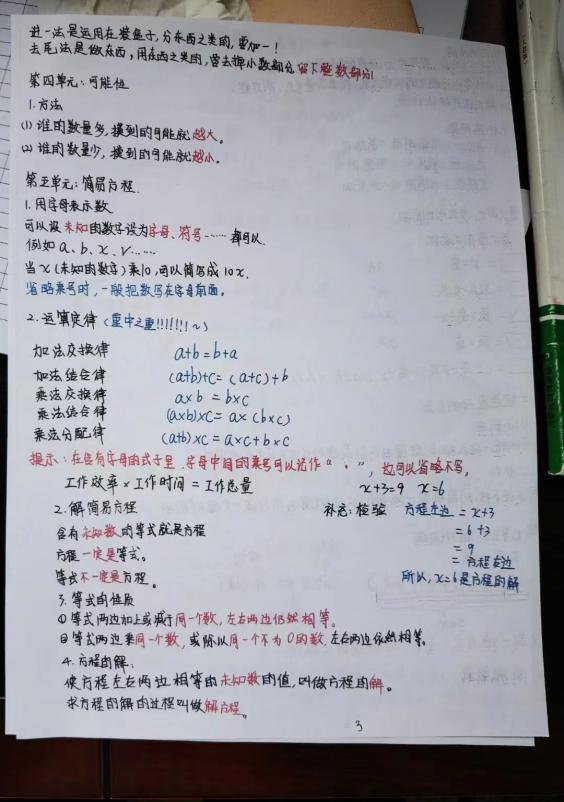 进一法是运用在装鱼子,分东西之类的,要加一!
去尾法是做东西,用东西之类的,要去掉小数部分留下整数部分!
第四单元:可能性
1.方法
(1) 谁的数量多,摸到的可能就越大。
(2) 谁的数量少,摸到的可能就越小。
第五单元:简易方程.
1.用字母表示数
可以设未知的数字设为字母、符号……都可以.
例如 a、b、x、v……
当x(未知的数字)乘10,可以简写成10x.
省略乘号时,一般把数写在字母前面。
2.运算定律(重中之重!!!!!!!~)
加法交换律 a+b=b+a
加法结合律 (a+b)+c=(a+c)+b
乘法交换律 a×b=b×c
乘法结合律 (a×b)×c=a×(b×c)
乘法分配律 (a+b)×c=a×c+b×c
提示:在含有字母的式子里,字母中间的乘号可以记作“·”,也可以省略不写。
工作效率×工作时间=工作总量 x+3=9 x=6
2.解简易方程 补充:检验 方程左边=x+3
含有未知数的等式就是方程 =6+3
方程一定是等式。 =9
=方程右边
等式不一定是方程。 所以,x=6是方程的解
3.等式的性质
①等式两边加上或减于同一个数,左右两边依然相等。
②等式两边乘同一个数,或除以同一个不为0的数,左右两边依然相等。
4.方程的解:
使方程左右两边相等的未知数的值,叫做方程的解。
求方程的解的过程叫做解方程。
3